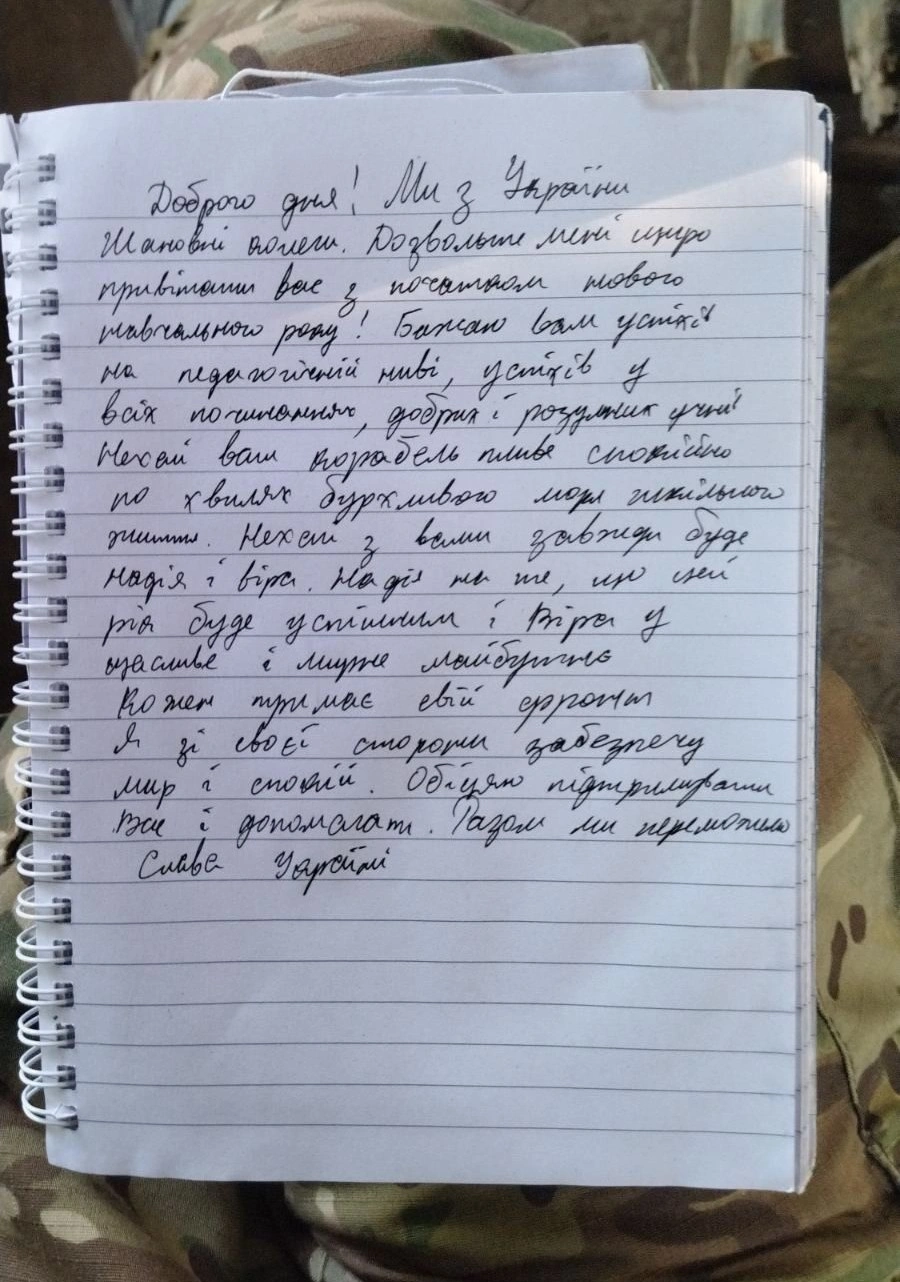 Доброго дня! Ми з України
Шановні колеги. Дозвольте мені щиро
привітати вас з початком нового
навчального року! Бажаю вам успіхів
на педагогічній ниві, успіхів у
всіх починаннях, добрих і розумних учнів
Нехай ваш корабель пливе спокійно
по хвилях бурхливого моря шкільного
життя. Нехай з вами завжди буде
надія і віра. Надія на те, що цей
рік буде успішним і Віра у
щасливе і мирне майбутнє
Кожен тримає свій фронт
Я зі своєї сторони забезпечу
мир і спокій. Обіцяю підтримувати
Вас і допомагати. Разом ми переможемо
Слава Україні